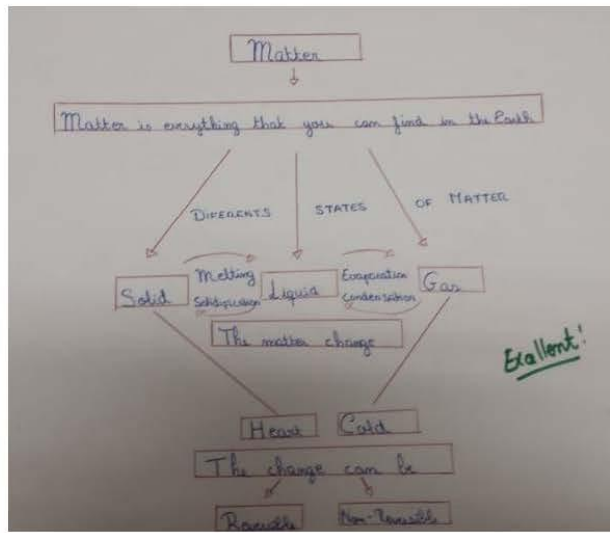 Matter
Matter is everything that you can find in the Earth
DIFERENTS STATES OF MATTER
Solid Melting Liquid Evaporation Gas
Solidification Condensation
The matter change
Exallent!
Heart Cold
The change can be
Reversible Non-Reversible